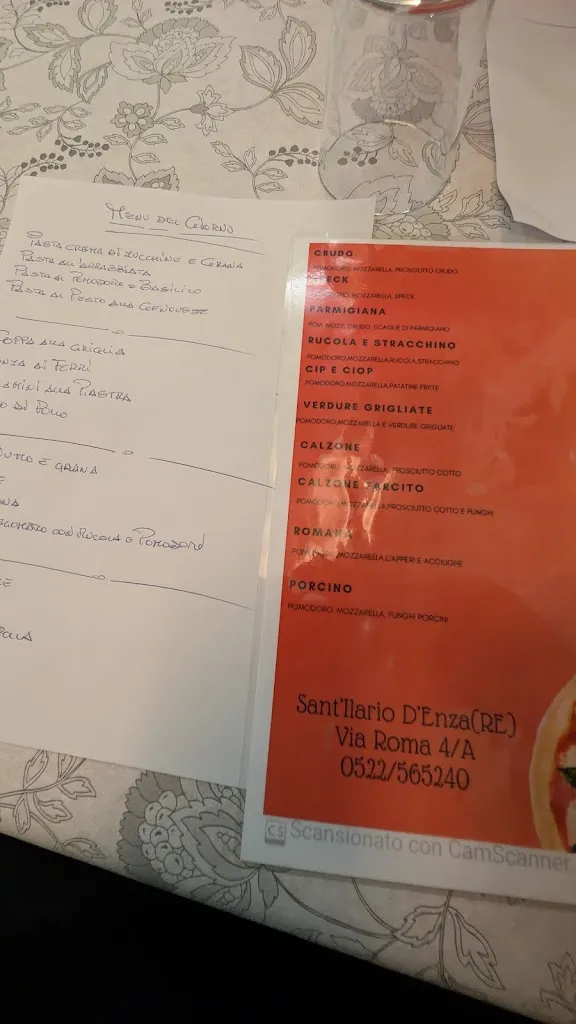 MENU DEL GIORNO
PASTA CREMA DI ZUCCHINE E GRANA
PASTA ALL'ARRABBIATA
PASTA AL POMODORO E BASILICO
PASTA AL PESTO ALLA GENOVESE
COPPA ALLA GRIGLIA
AI FERRI
ALLA PIASTRA
DI POLLO
E GRANA
CON RUCOLA E POMODORI
CRUDO
POMODORO, MOZZARELLA, PROSCIUTTO CRUDO
ECK
MOZZARELLA, SPECK
PARMIGIANA
POM. MOZZ, CRUDO, SCAGLIE DI PARMIGIANO
RUCOLA E STRACCHINO
POMODORO,MOZZARELLA,RUCOLA,STRACCHINO
CIP E CIOP
POMODORO,MOZZARELLA,PATATINE FRITTE
VERDURE GRIGLIATE
POMODORO,MOZZARELLA E VERDURE GRIGLIATE
CALZONE
POMODORO, MOZZARELLA, PROSCIUTTO COTTO
CALZONE FARCITO
POMODORO,MOZZARELLA,PROSCIUTTO COTTO E FUNGHI
ROMANA
POMODORO,MOZZARELLA,CAPPERI E ACCIUGHE
PORCINO
POMODORO, MOZZARELLA, FUNGHI PORCINI
Sant'Ilario D'Enza(RE)
Via Roma 4/A
0522/565240
CS Scansionato con CamScanner